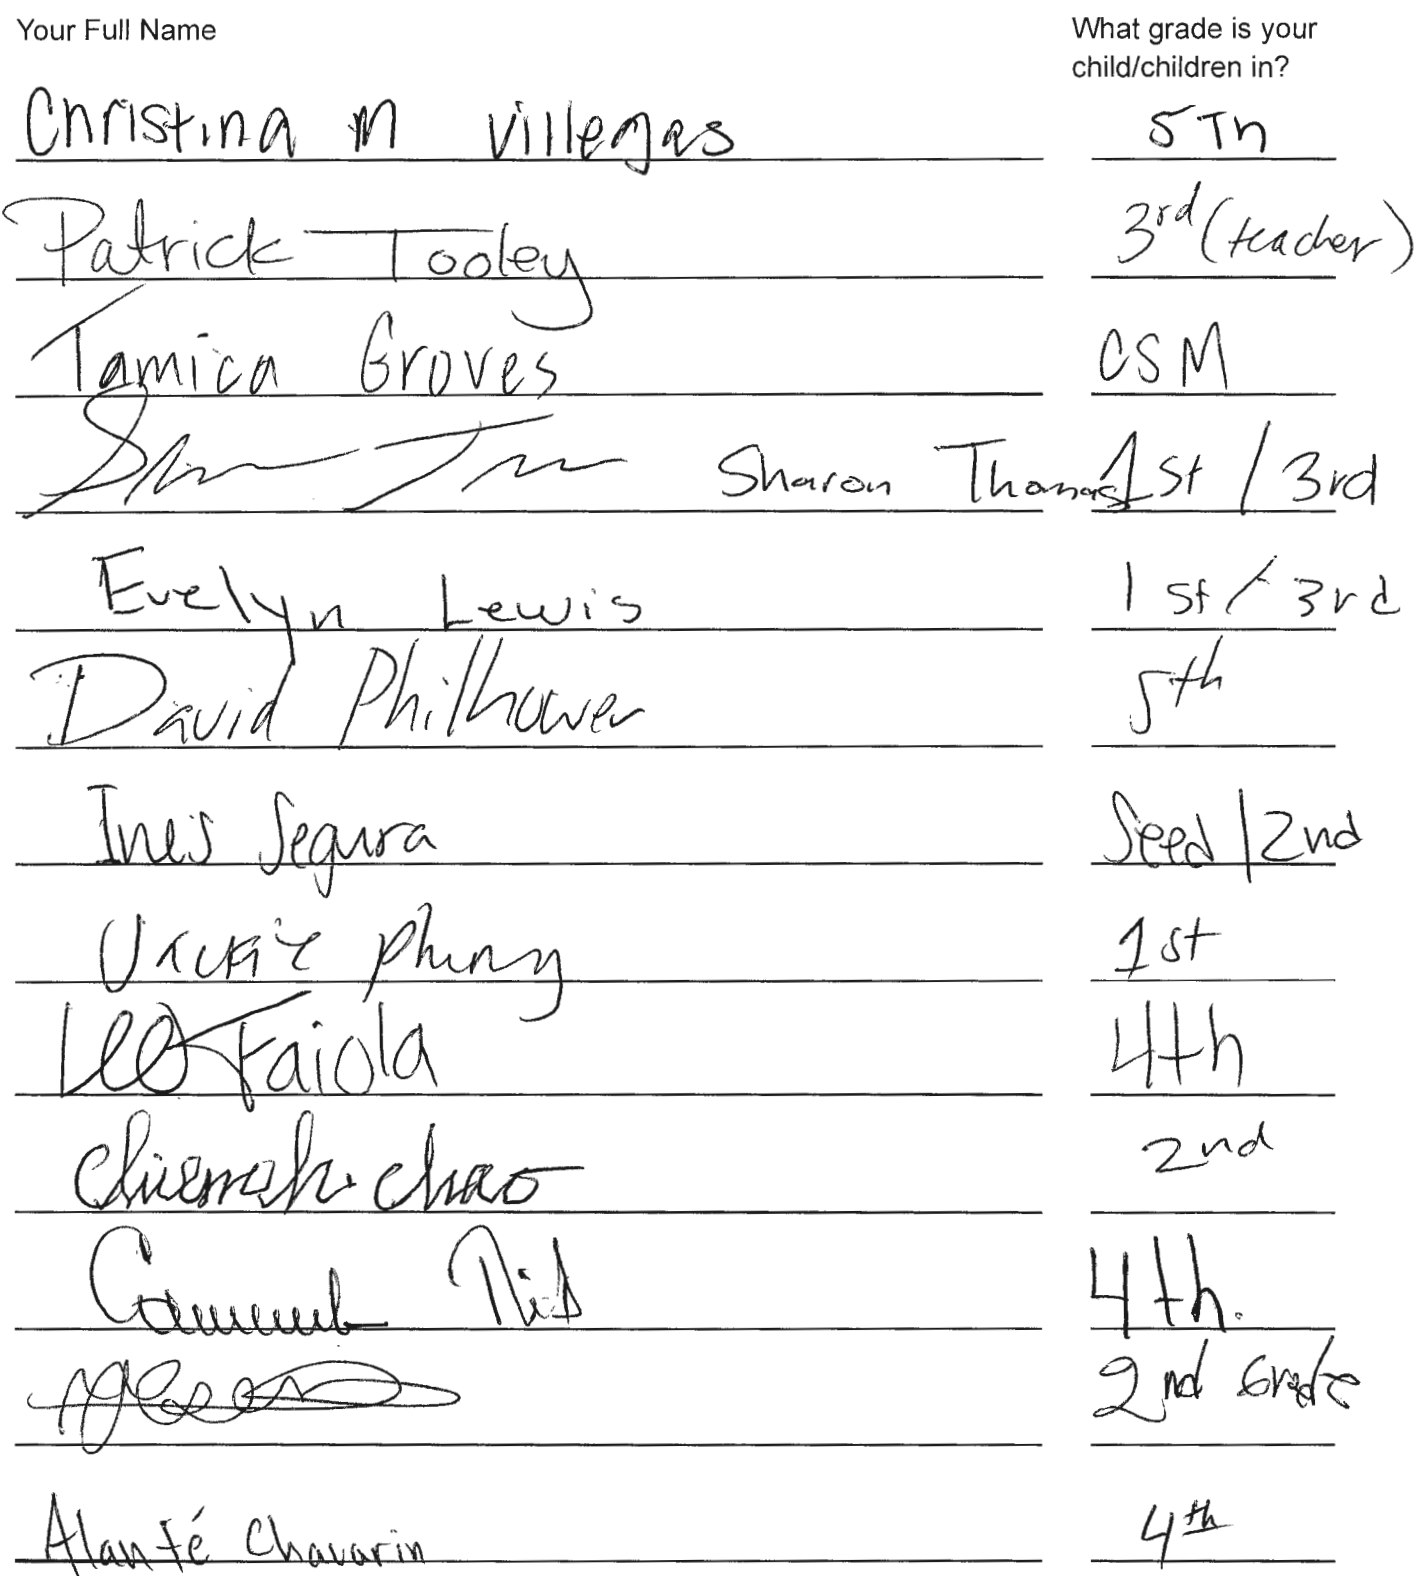 Your Full Name
What grade is your
child/children in?
Christina M Villegas 5Th
Patrick Tooley 3rd (teacher)
Tamica Groves CSM
Sharon Thomas 1st / 3rd
Evelyn Lewis 1st / 3rd
David Philhower 5th
Ines Segura Seed / 2nd
Jackie Phung 1st
Leo Faiola 4th
chao 2nd
4th.
2nd Grade
Alanté Chavarin 4th